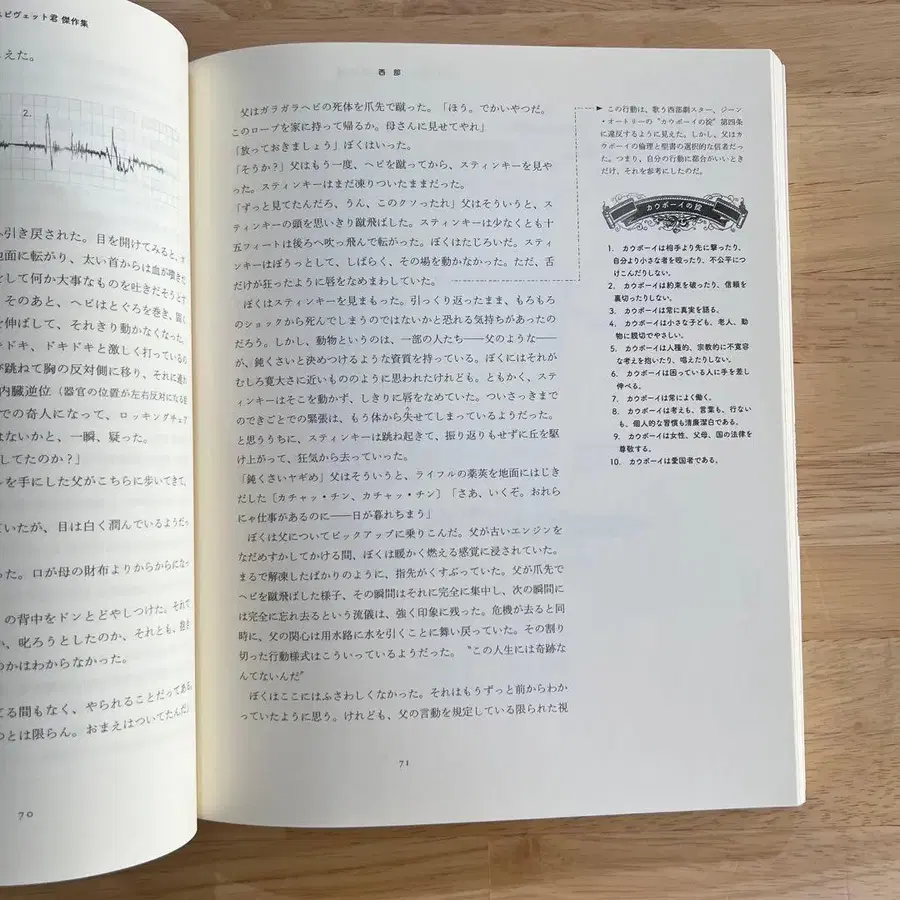 スピヴェット君 傑作集
えた。
2.
引き戻された。目を開けてみると、
地面に転がり、太い首からは血が噴きだ
をして何か大事なものを吐きだそうとす
そのあと、ヘビはとぐろを巻き、固く
を伸ばして、それきり動かなくなった。
ドキドキ、ドキドキと激しく打っているの
が跳ねて胸の反対側に移り、それに連れ
内臓逆位（器官の位置が左右反対になる症
での奇人になって、ロッキングチェア
はないかと、一瞬、疑った。
してたのか？」
ルを手にした父がこちらに歩いてきて、
ていたが、目は白く潤んでいるようだっ
った。口が母の財布よりからからになっ
の背中をドンとどやしつけた。それで
か、叱ろうとしたのか、それとも、抱き
のかはわからなかった。
てる間もなく、やられることだってある。
つとは限らん。おまえはついてたんだ」
70
西部
父はガラガラヘビの死体を爪先で蹴った。「ほう。でかいやつだ。
このロープを家に持って帰るか。母さんに見せてやれ」
「放っておきましょう」ぼくはいった。
「そうか？」父はもう一度、ヘビを蹴ってから、スティンキーを見や
った。スティンキーはまだ凍りついたままだった。
「ずっと見てたんだろ、うん、このクソったれ」父はそういうと、ス
ティンキーの頭を思いきり蹴飛ばした。スティンキーは少なくとも十
五フィートは後ろへ吹っ飛んで転がった。ぼくはたじろいだ。スティ
ンキーはぼうっとして、しばらく、その場を動かなかった。ただ、舌
だけが狂ったように唇をなめまわしていた。
ぼくはスティンキーを見まもった。引っくり返ったまま、もろもろ
のショックから死んでしまうのではないかと恐れる気持ちがあったの
だろう。しかし、動物というのは、一部の人たち――父のような――
が、鈍くさいと決めつけるような資質を持っている。ぼくにはそれが
むしろ寛大さに近いもののように思われたけれども。ともかく、ステ
ィンキーはそこを動かず、しきりに唇をなめていた。ついさっきまで
のできごとでの緊張は、もう体から失せてしまっているようだった。
と思ううちに、スティンキーは跳ね起きて、振り返りもせずに丘を駆
け上がって、狂気から去っていった。
「鈍くさいヤギめ」父はそういうと、ライフルの薬莢を地面にはじき
だした［カチャッ・チン、カチャッ・チン］「さあ、いくぞ。おれら
にゃ仕事があるのに――日が暮れちまう」
ぼくは父についてピックアップに乗りこんだ。父が古いエンジンを
なだめすかしてかける間、ぼくは暖かく燃える感覚に浸されていた。
まるで解凍したばかりのように、指先がくすぶっていた。父が爪先で
ヘビを蹴飛ばした様子、その瞬間はそれに完全に集中し、次の瞬間に
は完全に忘れ去るという流儀は、強く印象に残った。危機が去ると同
時に、父の関心は用水路に水を引くことに舞い戻っていた。その割り
切った行動様式はこういっているようだった。〝この人生には奇跡な
んてないんだ〟
ぼくはここにはふさわしくなかった。それはもうずっと前からわか
っていたように思う。けれども、父の言動を規定している限られた視
71
この行動は、歌う西部劇スター、ジーン
・オートリーの〝カウボーイの掟〟第四条
に違反するように見えた。しかし、父はカ
ウボーイの倫理と聖書の選択的な信者だっ
た。つまり、自分の行動に都合がいいとき
だけ、それを参考にしたのだ。
カウボーイの掟
1. カウボーイは相手より先に撃ったり、
自分より小さな者を殴ったり、不公平につ
けこんだりしない。
2. カウボーイは約束を破ったり、信頼を
裏切ったりしない。
3. カウボーイは常に真実を語る。
4. カウボーイは小さな子ども、老人、動
物に親切でやさしい。
5. カウボーイは人種的、宗教的に不寛容
な考えを抱いたり、唱えたりしない。
6. カウボーイは困っている人に手を差し
伸べる。
7. カウボーイは常によく働く。
8. カウボーイは考えも、言葉も、行ない
も、個人的な習慣も清廉潔白である。
9. カウボーイは女性、父母、国の法律を
尊敬する。
10. カウボーイは愛国者である。